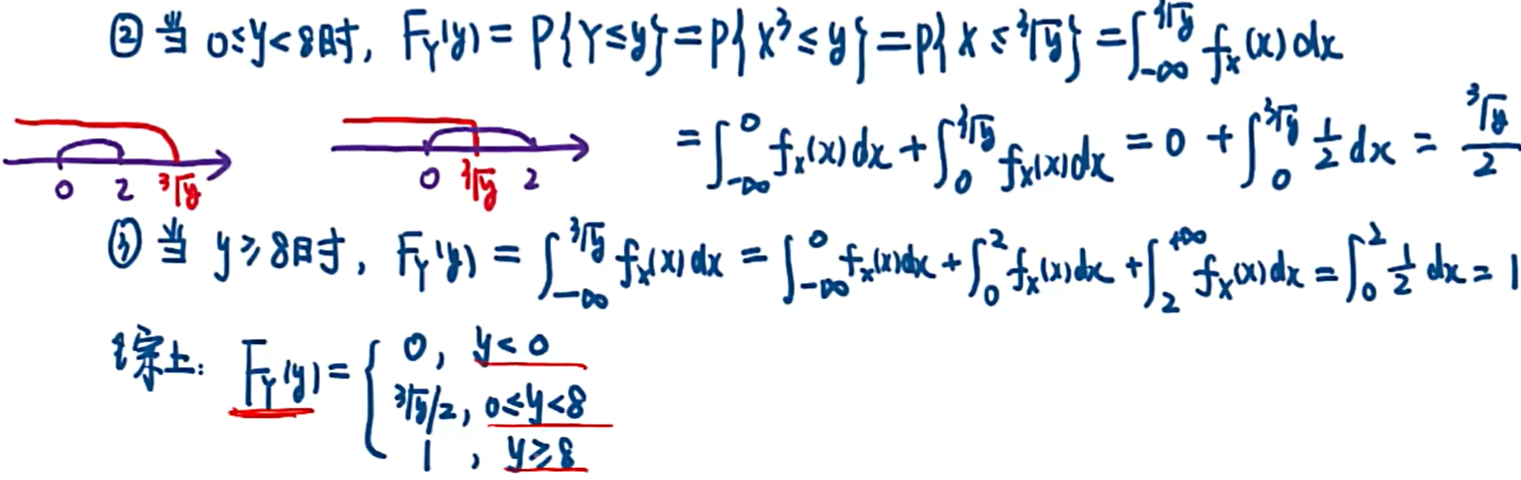 ② 当 0≤y<8时, F_Y(y) = P{Y≤y} = P{X³≤y} = P{X≤∛y} = ∫_{-∞}^{∛y} f_X(x)dx
= ∫_{-∞}^{0} f_X(x)dx + ∫_{0}^{∛y} f_X(x)dx = 0 + ∫_{0}^{∛y} 1/2 dx = ∛y/2
0 2 ∛y
0 ∛y 2
③ 当 y≥8时, F_Y(y) = ∫_{-∞}^{∛y} f_X(x)dx = ∫_{-∞}^{0} f_X(x)dx + ∫_{0}^{2} f_X(x)dx + ∫_{2}^{+∞} f_X(x)dx = ∫_{0}^{2} 1/2 dx = 1
综上: F_Y(y) = { 0, y<0
∛y/2, 0≤y<8
1, y≥8